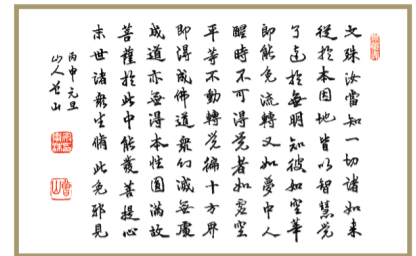 文殊汝當知一切諸如來
從於本因地皆以智慧覺
了達於無明知彼如空華
即能免流轉又如夢中人
醒時不可得覺者如虛空
平等不動轉覺徧十方界
即得成佛道眾幻滅無處
成道亦無得本性圓滿故
菩薩於此中能發菩提心
末世諸眾生脩此免邪見
丙申元旦
山人